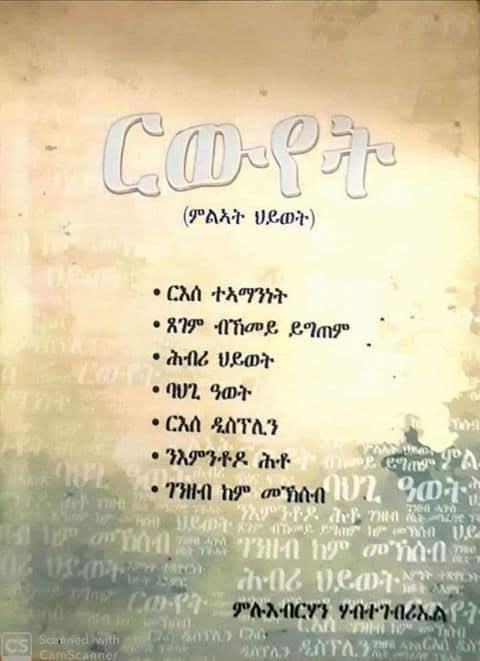 ርውየት
(ምልኣት ህይወት)
• ርእሰ ተኣማንነት
• ጸገም ብኸመይ ይግጠም
• ሕብሪ ህይወት
• ባህጊ ዓወት
• ርእሰ ዲስፕሊን
• ንእምንቶዶ ሕቶ
• ገንዘብ ከም መኽሰብ
ይግጠም ምል
ባህጊ ዓወት
ገንዘብ ከም መኽሰብ
ሕብሪ ህይወት
ርውየት
ምሉእብርሃን ሃብተገብሪኤል
CS Scanned with
CamScanner